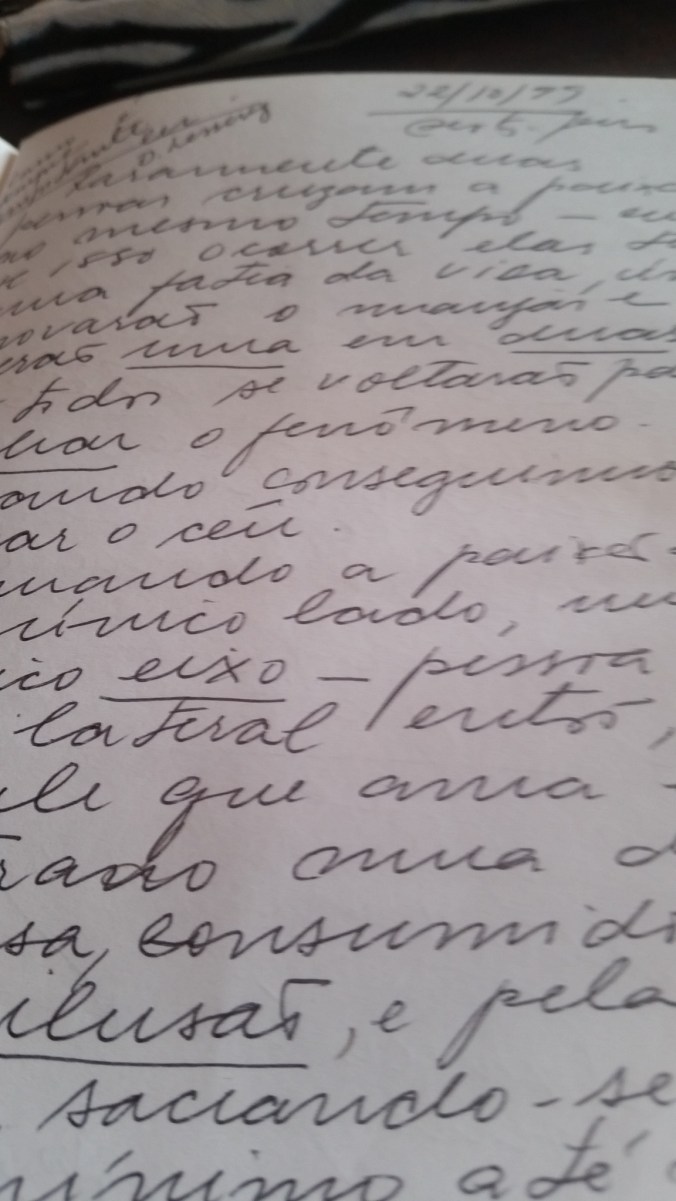 22/10/99
Raramente duas
pessoas cruzam a paixã
no mesmo tempo — 
isso ocorrer elas
uma fatia da vida,
novarão o manjar e
erão uma em duas
todos se voltarão pa
har o fenômeno.
uando conseguimo
ar o céu.
uando a paixão
único lado, nu
ico eixo — pessoa
lateral então,
ele que ama -
trado numa d
sa, consumid
ilusão, e pela
saciando-se
mínimo até